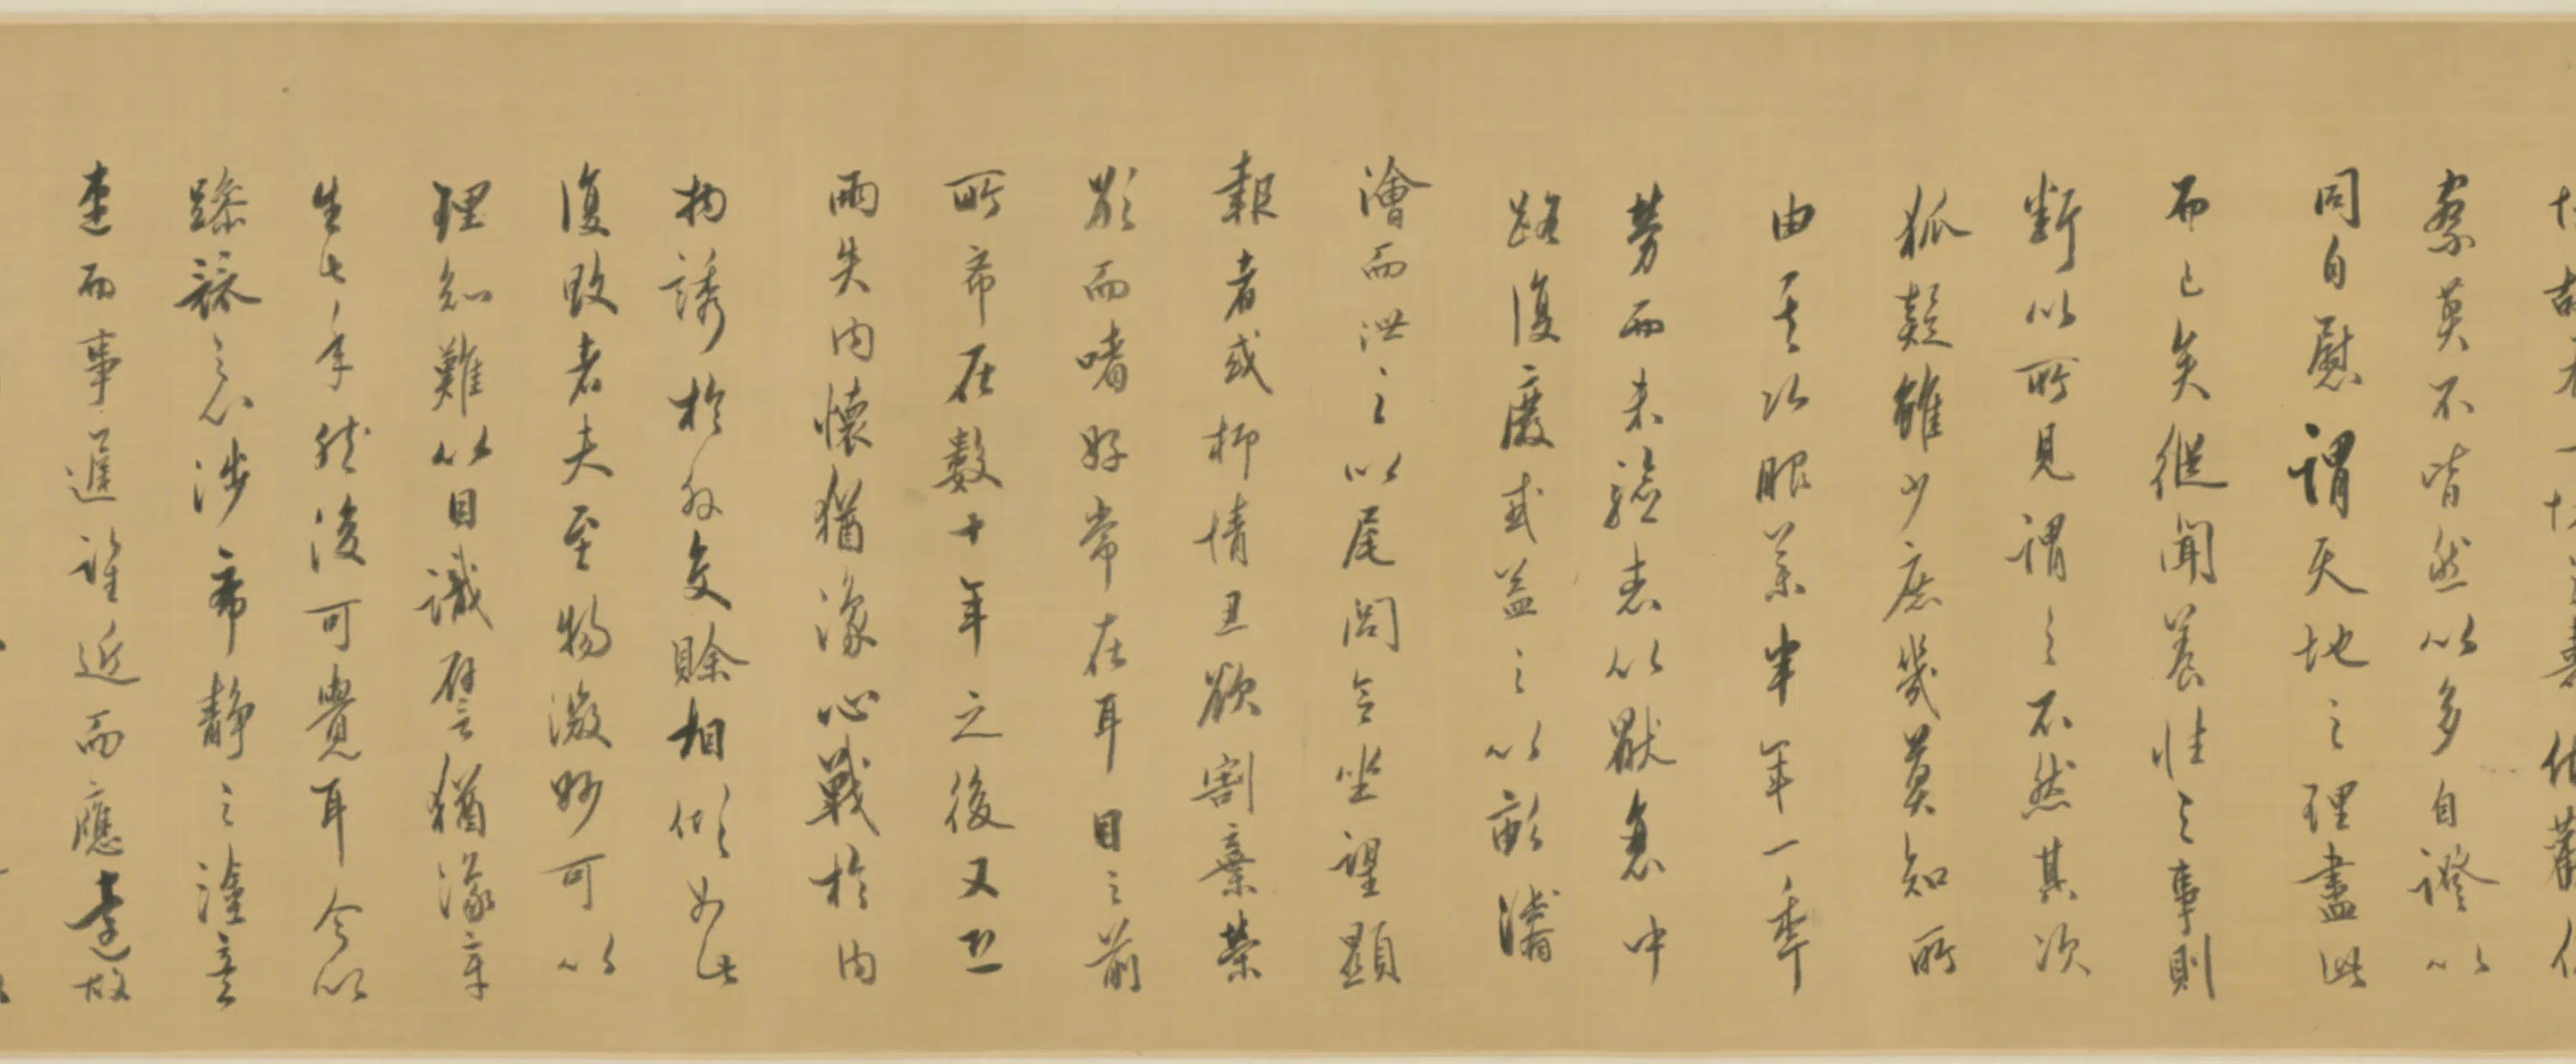 察莫不皆然以多自證以
同自慰謂天地之理盡此
而已矣縱聞養性之事則
斷以所見謂之不然其次
狐疑雖少庶幾莫知所
由其次服藥半年一年
勞而未驗志以厭怠中
路復廢或益之以畎
澮而泄之以尾閭令坐望顯
報者或抑情忍欲割棄榮
願而嗜好常在耳目之前
所希在數十年之後又恐
兩失內懷猶豫心戰於內
物誘於外交賒相傾如此
復敗者夫至物微妙可以
理知難以目識譬猶豫章
生七年然後可覺耳今以
躁競之心涉希靜之塗意
速而事遲望近而應遠故